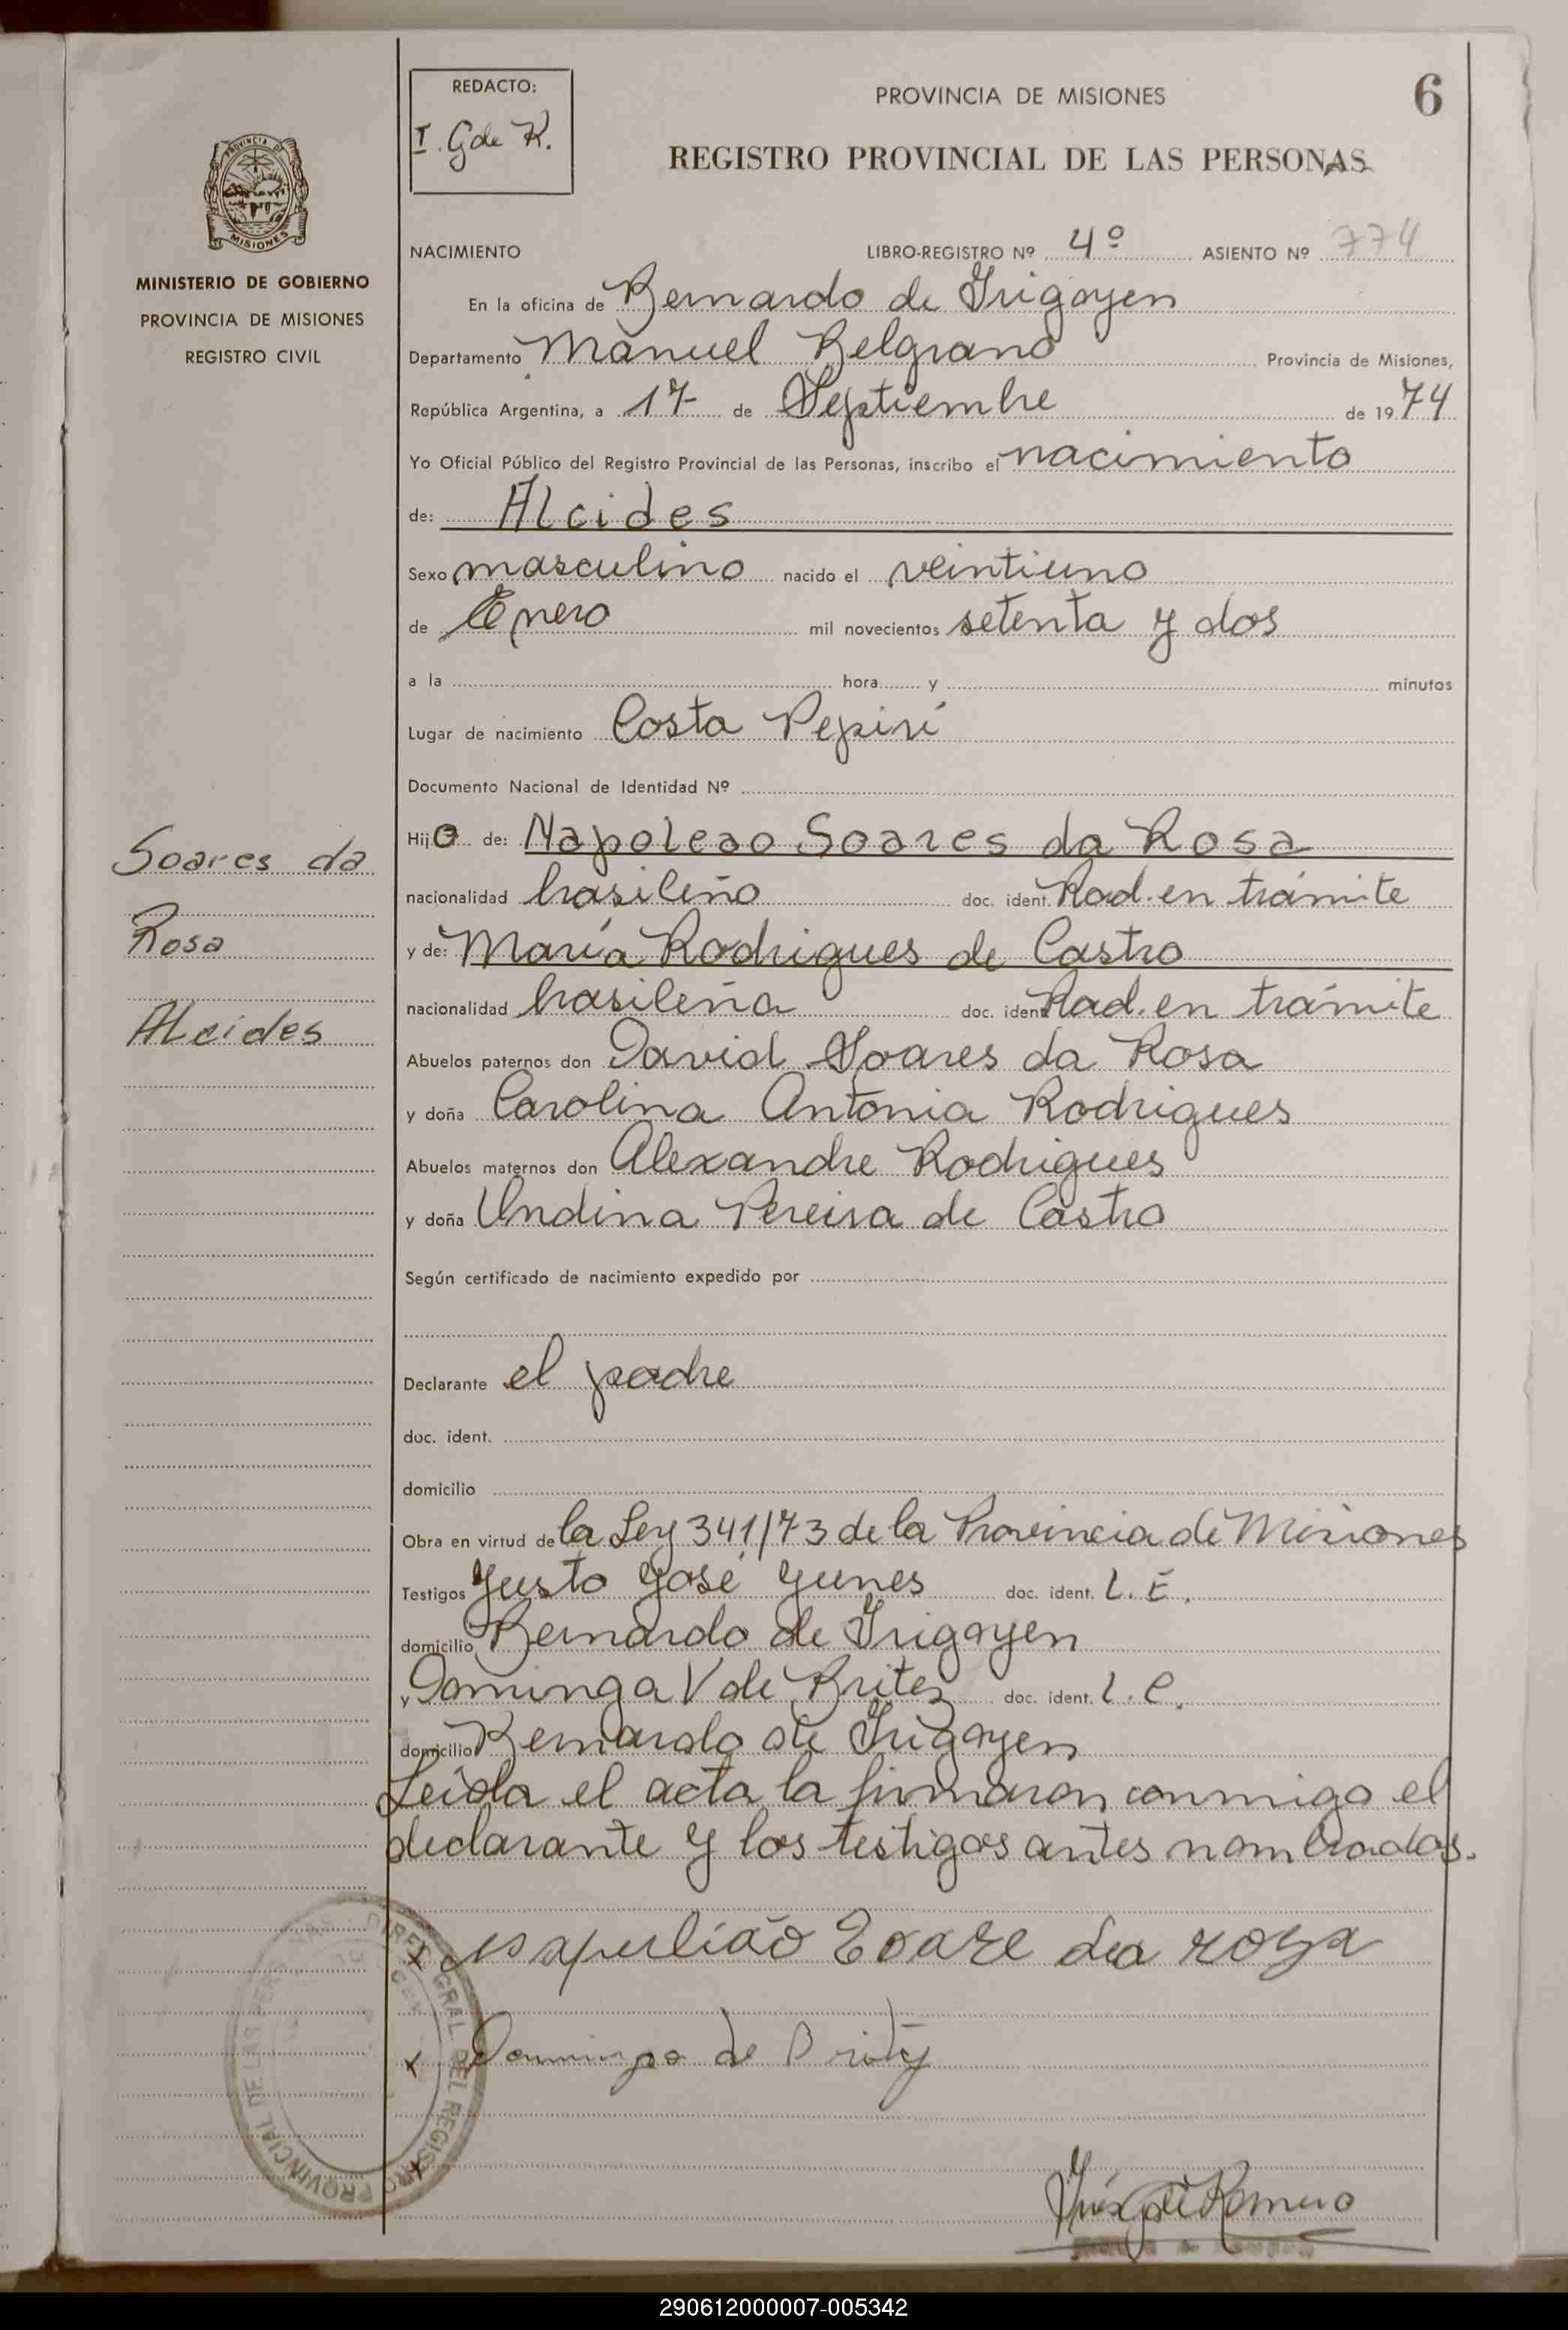 REDACTO:
I. G de R.
PROVINCIA DE MISIONES
6
REGISTRO PROVINCIAL DE LAS PERSONAS
PROVINCIA DE
MISIONES
MINISTERIO DE GOBIERNO
PROVINCIA DE MISIONES
REGISTRO CIVIL
NACIMIENTO LIBRO-REGISTRO Nº 4º ASIENTO Nº 774
En la oficina de Bernardo de Irigoyen
Departamento Manuel Belgrano Provincia de Misiones,
República Argentina, a 17 de Septiembre de 1974
Yo Oficial Público del Registro Provincial de las Personas, inscribo el nacimiento
de: Alcides
Sexo masculino nacido el veintiuno
de Enero mil novecientos setenta y dos
a la hora y minutos
Lugar de nacimiento Costa Pepirí
Documento Nacional de Identidad Nº
Soares da
Rosa
Alcides
Hijo de: Napoleao Soares da Rosa
nacionalidad brasileño doc. ident. Rad. en trámite
y de: María Rodrigues de Castro
nacionalidad brasileña doc. ident. Rad. en trámite
Abuelos paternos don David Soares da Rosa
y doña Carolina Antonia Rodrigues
Abuelos maternos don Alexandre Rodrigues
y doña Undina Pereira de Castro
Según certificado de nacimiento expedido por
Declarante el padre
doc. ident.
domicilio
Obra en virtud de la Ley 341/73 de la Provincia de Misiones
Testigos Justo José Yunes doc. ident. L.E.
domicilio Bernardo de Irigoyen
y Dominga V de Britez doc. ident. L.C.
domicilio Bernardo de Irigoyen
Leida el acta la firmaron conmigo el
declarante y los testigos antes nombrados.
x Soare da rosa
x Dominga de Britez
x
Inés G de Romero
DIREC. GRAL. DEL REGISTRO PROVINCIAL DE LAS PERSONAS
290612000007-005342